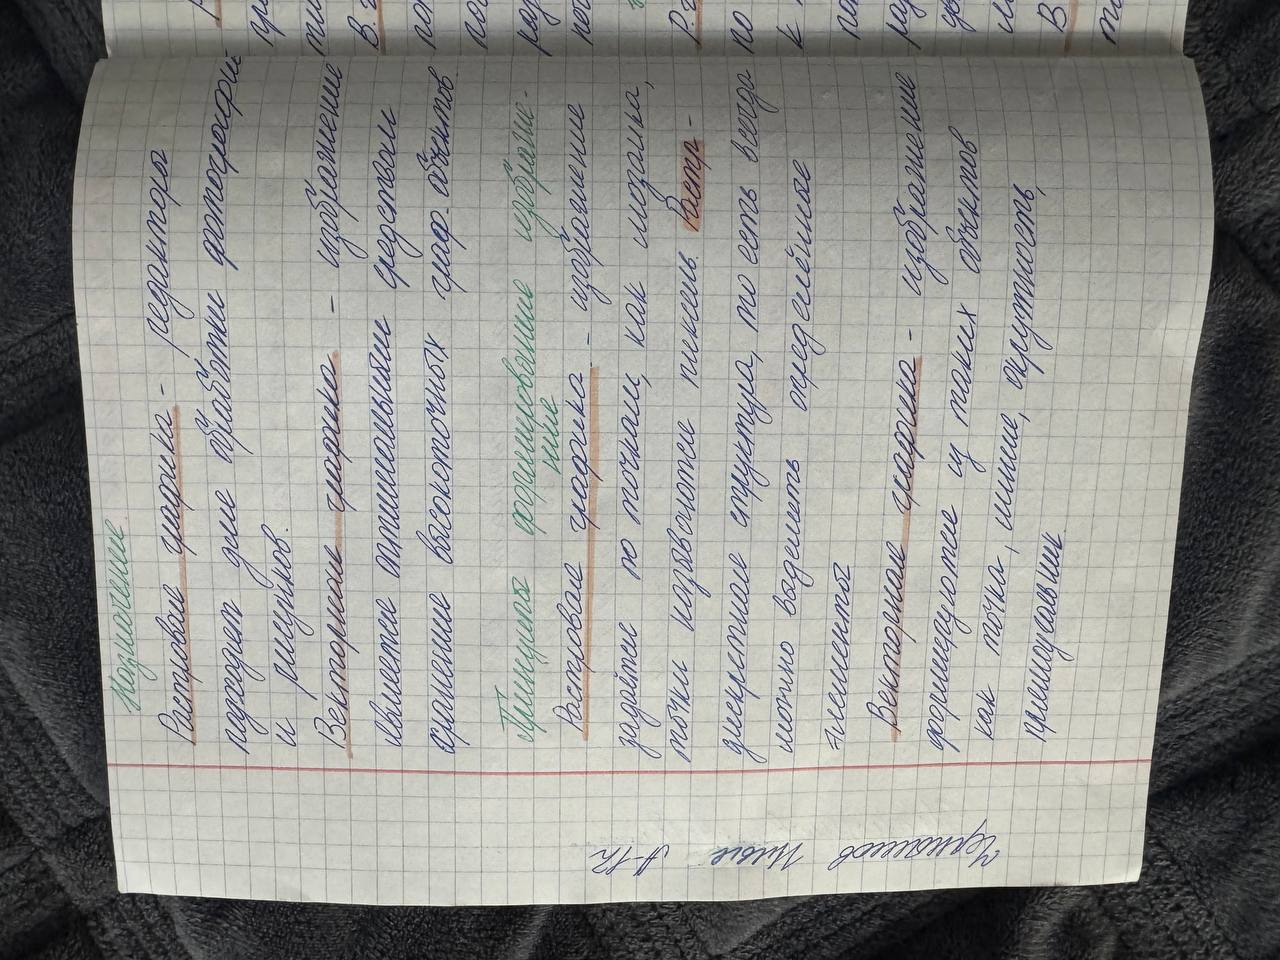 Назначение
Растровая графика - редакторы
подходят для обработки фотографий
и рисунков.
Векторная графика - изображение
является оптимальными средствами
хранение высокоточных граф. объектов
Принципы формирование изображе-
ние
Растровая графика - изображение
задаётся по точкам, как мозаика,
точки называются пиксель. Растр -
дискретная структура, то есть всегда
можно выделить определённые
элементы
Векторная графика - изображение
формируются из таких объектов
как точка, линия, окружность,
прямоугольник.
Илья А-12